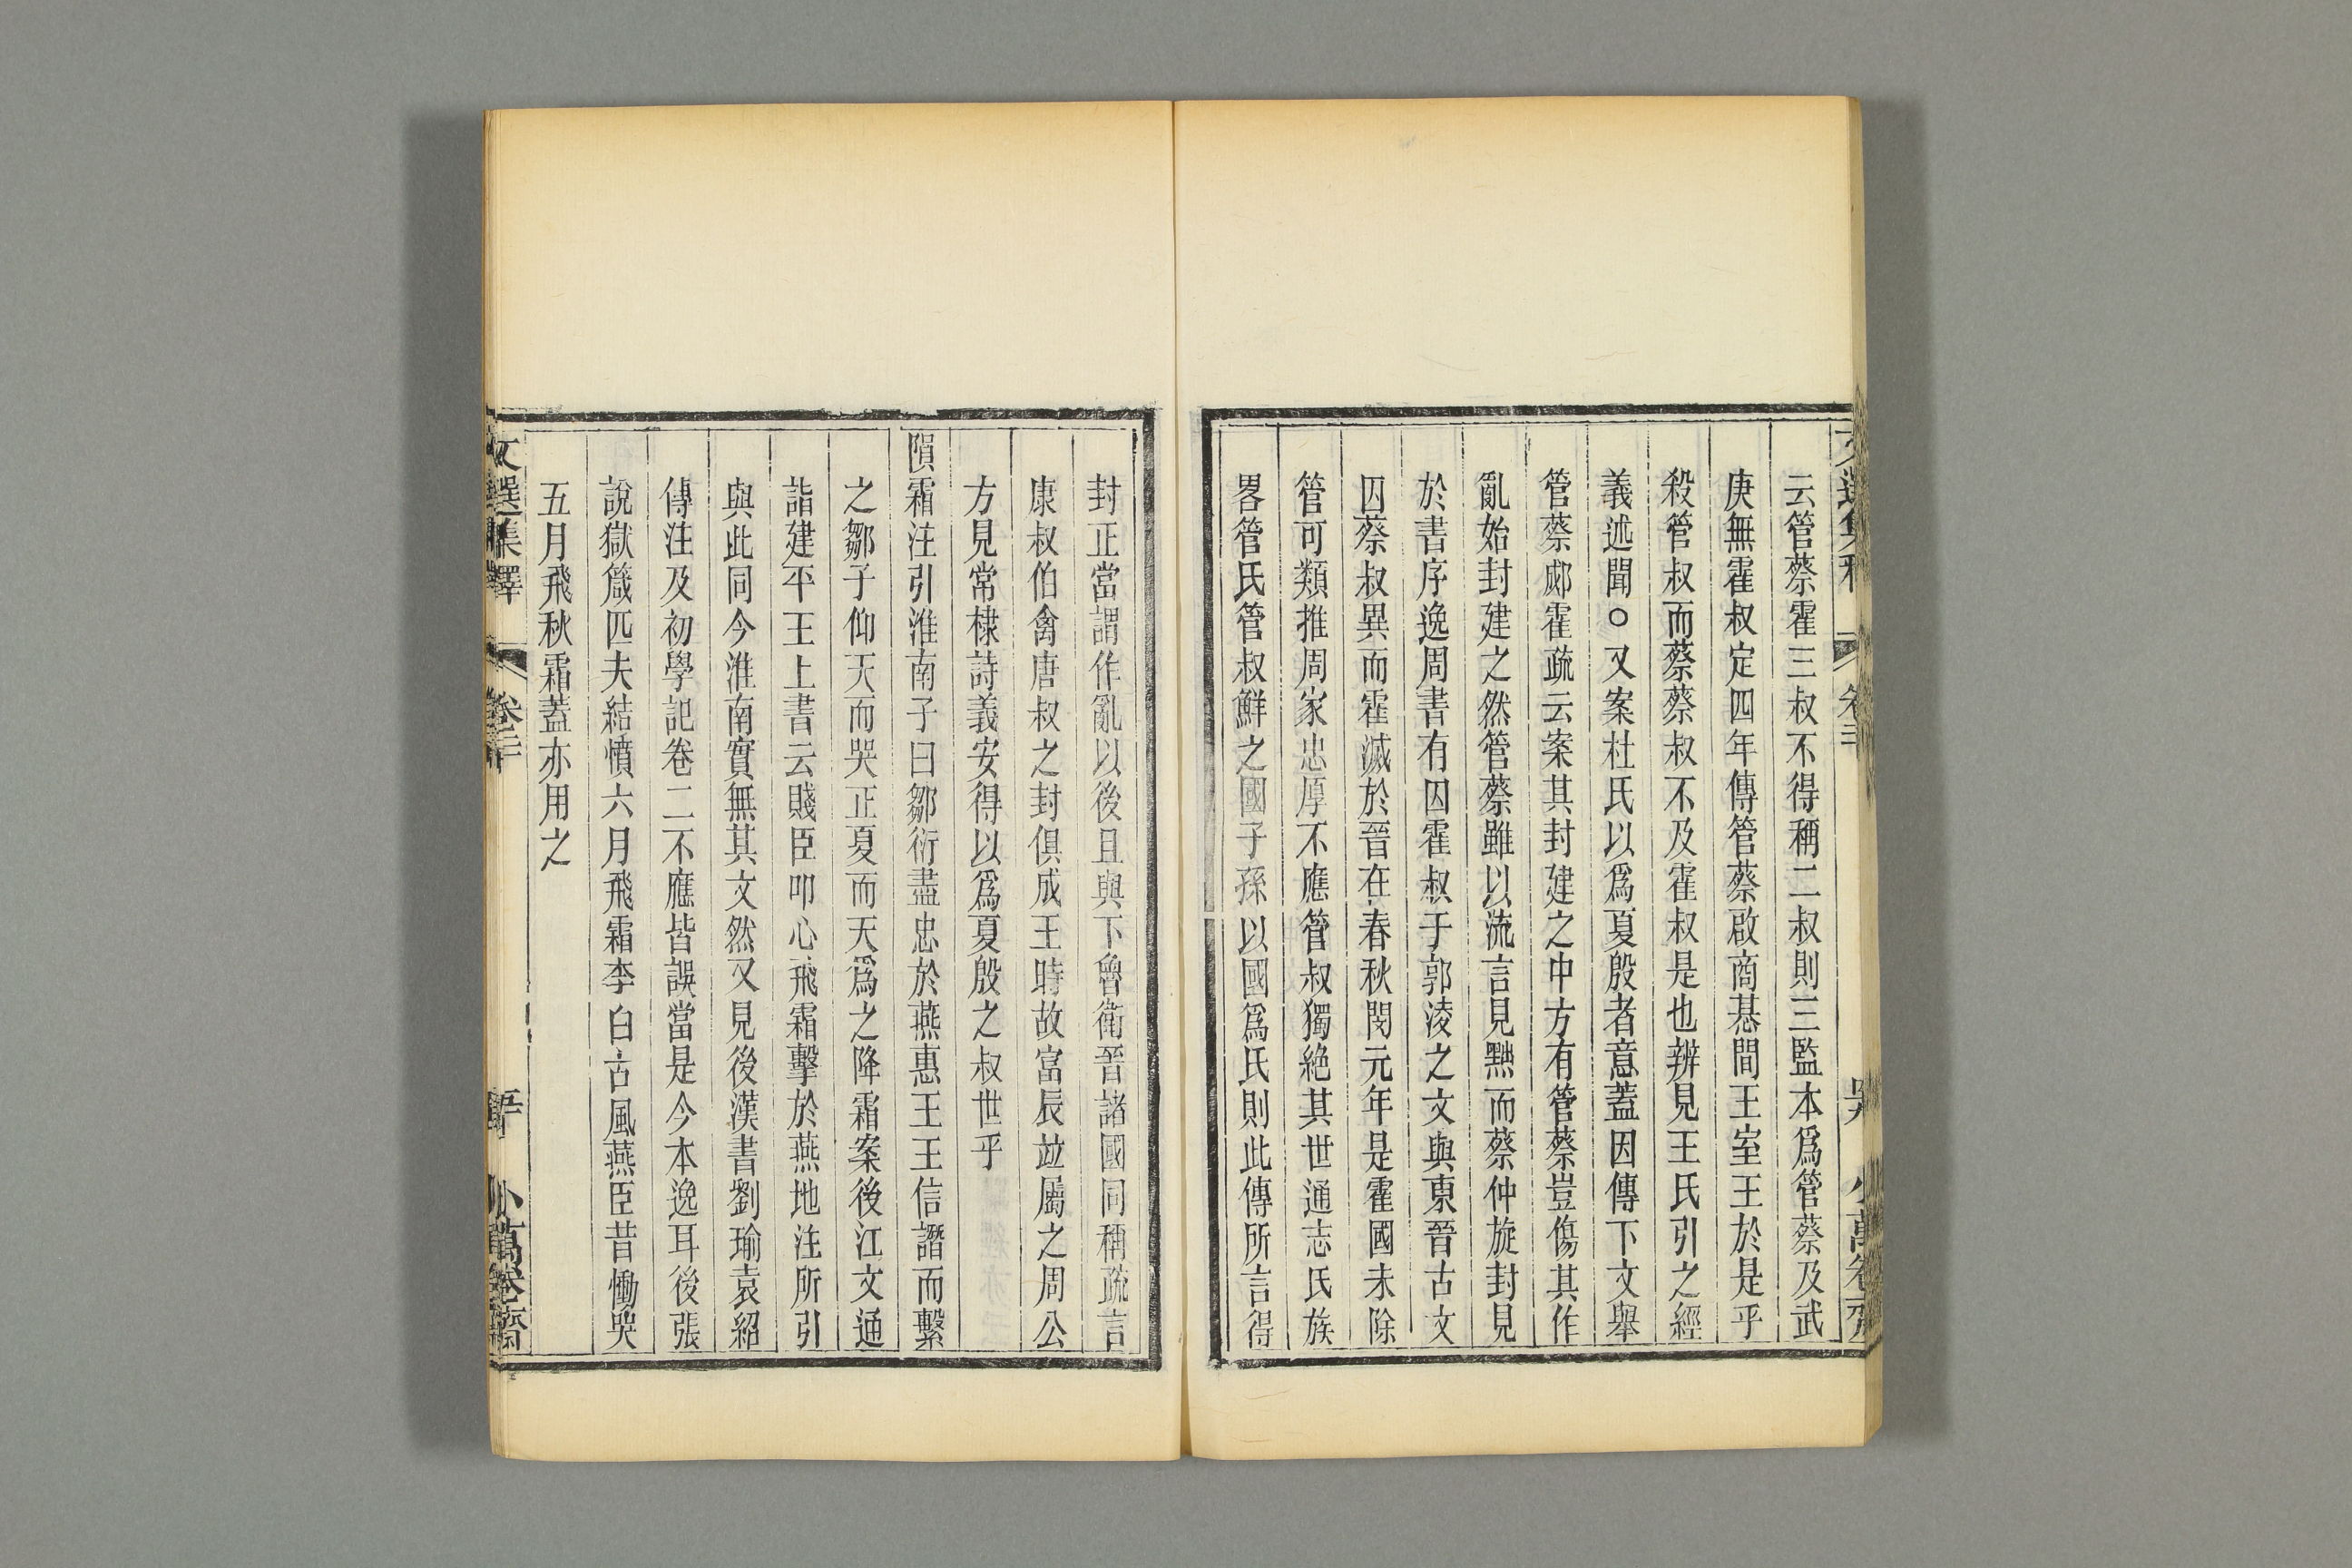 云管蔡霍三叔不得稱二叔則三監本爲管蔡及武
庚無霍叔定四年傳管蔡啟商惎間王室王於是乎
殺管叔而蔡蔡叔不及霍叔是也辨見王氏引之經
義述聞○又案杜氏以爲夏殷者意蓋因傳下文舉
管蔡郕霍疏云案其封建之中方有管蔡豈傷其作
亂始封建之然管蔡雖以流言見黜而蔡仲旋封見
於書序逸周書有囚霍叔于郭淩之文與東晉古文
囚蔡叔異而霍滅於晉在春秋閔元年是霍國未除
管可類推周家忠厚不應管叔獨絶其世通志氏族
畧管氏管叔鮮之國子孫以國爲氏則此傳所言得
封正當謂作亂以後且與下魯衛晉諸國同稱疏言
康叔伯禽唐叔之封俱成王時故富辰竝屬之周公
方見常棣詩義安得以爲夏殷之叔世乎
隕霜注引淮南子曰鄒衍盡忠於燕惠王王信譖而繫
之鄒子仰天而哭正夏而天爲之降霜案後江文通
詣建平王上書云賤臣叩心飛霜擊於燕地注所引
與此同今淮南實無其文然又見後漢書劉瑜袁紹
傳注及初學記卷二不應皆誤當是今本逸耳後張
說獄箴匹夫結憤六月飛霜李白古風燕臣昔慟哭
五月飛秋霜蓋亦用之
文選集釋 卷二十 五十 小萬卷齋